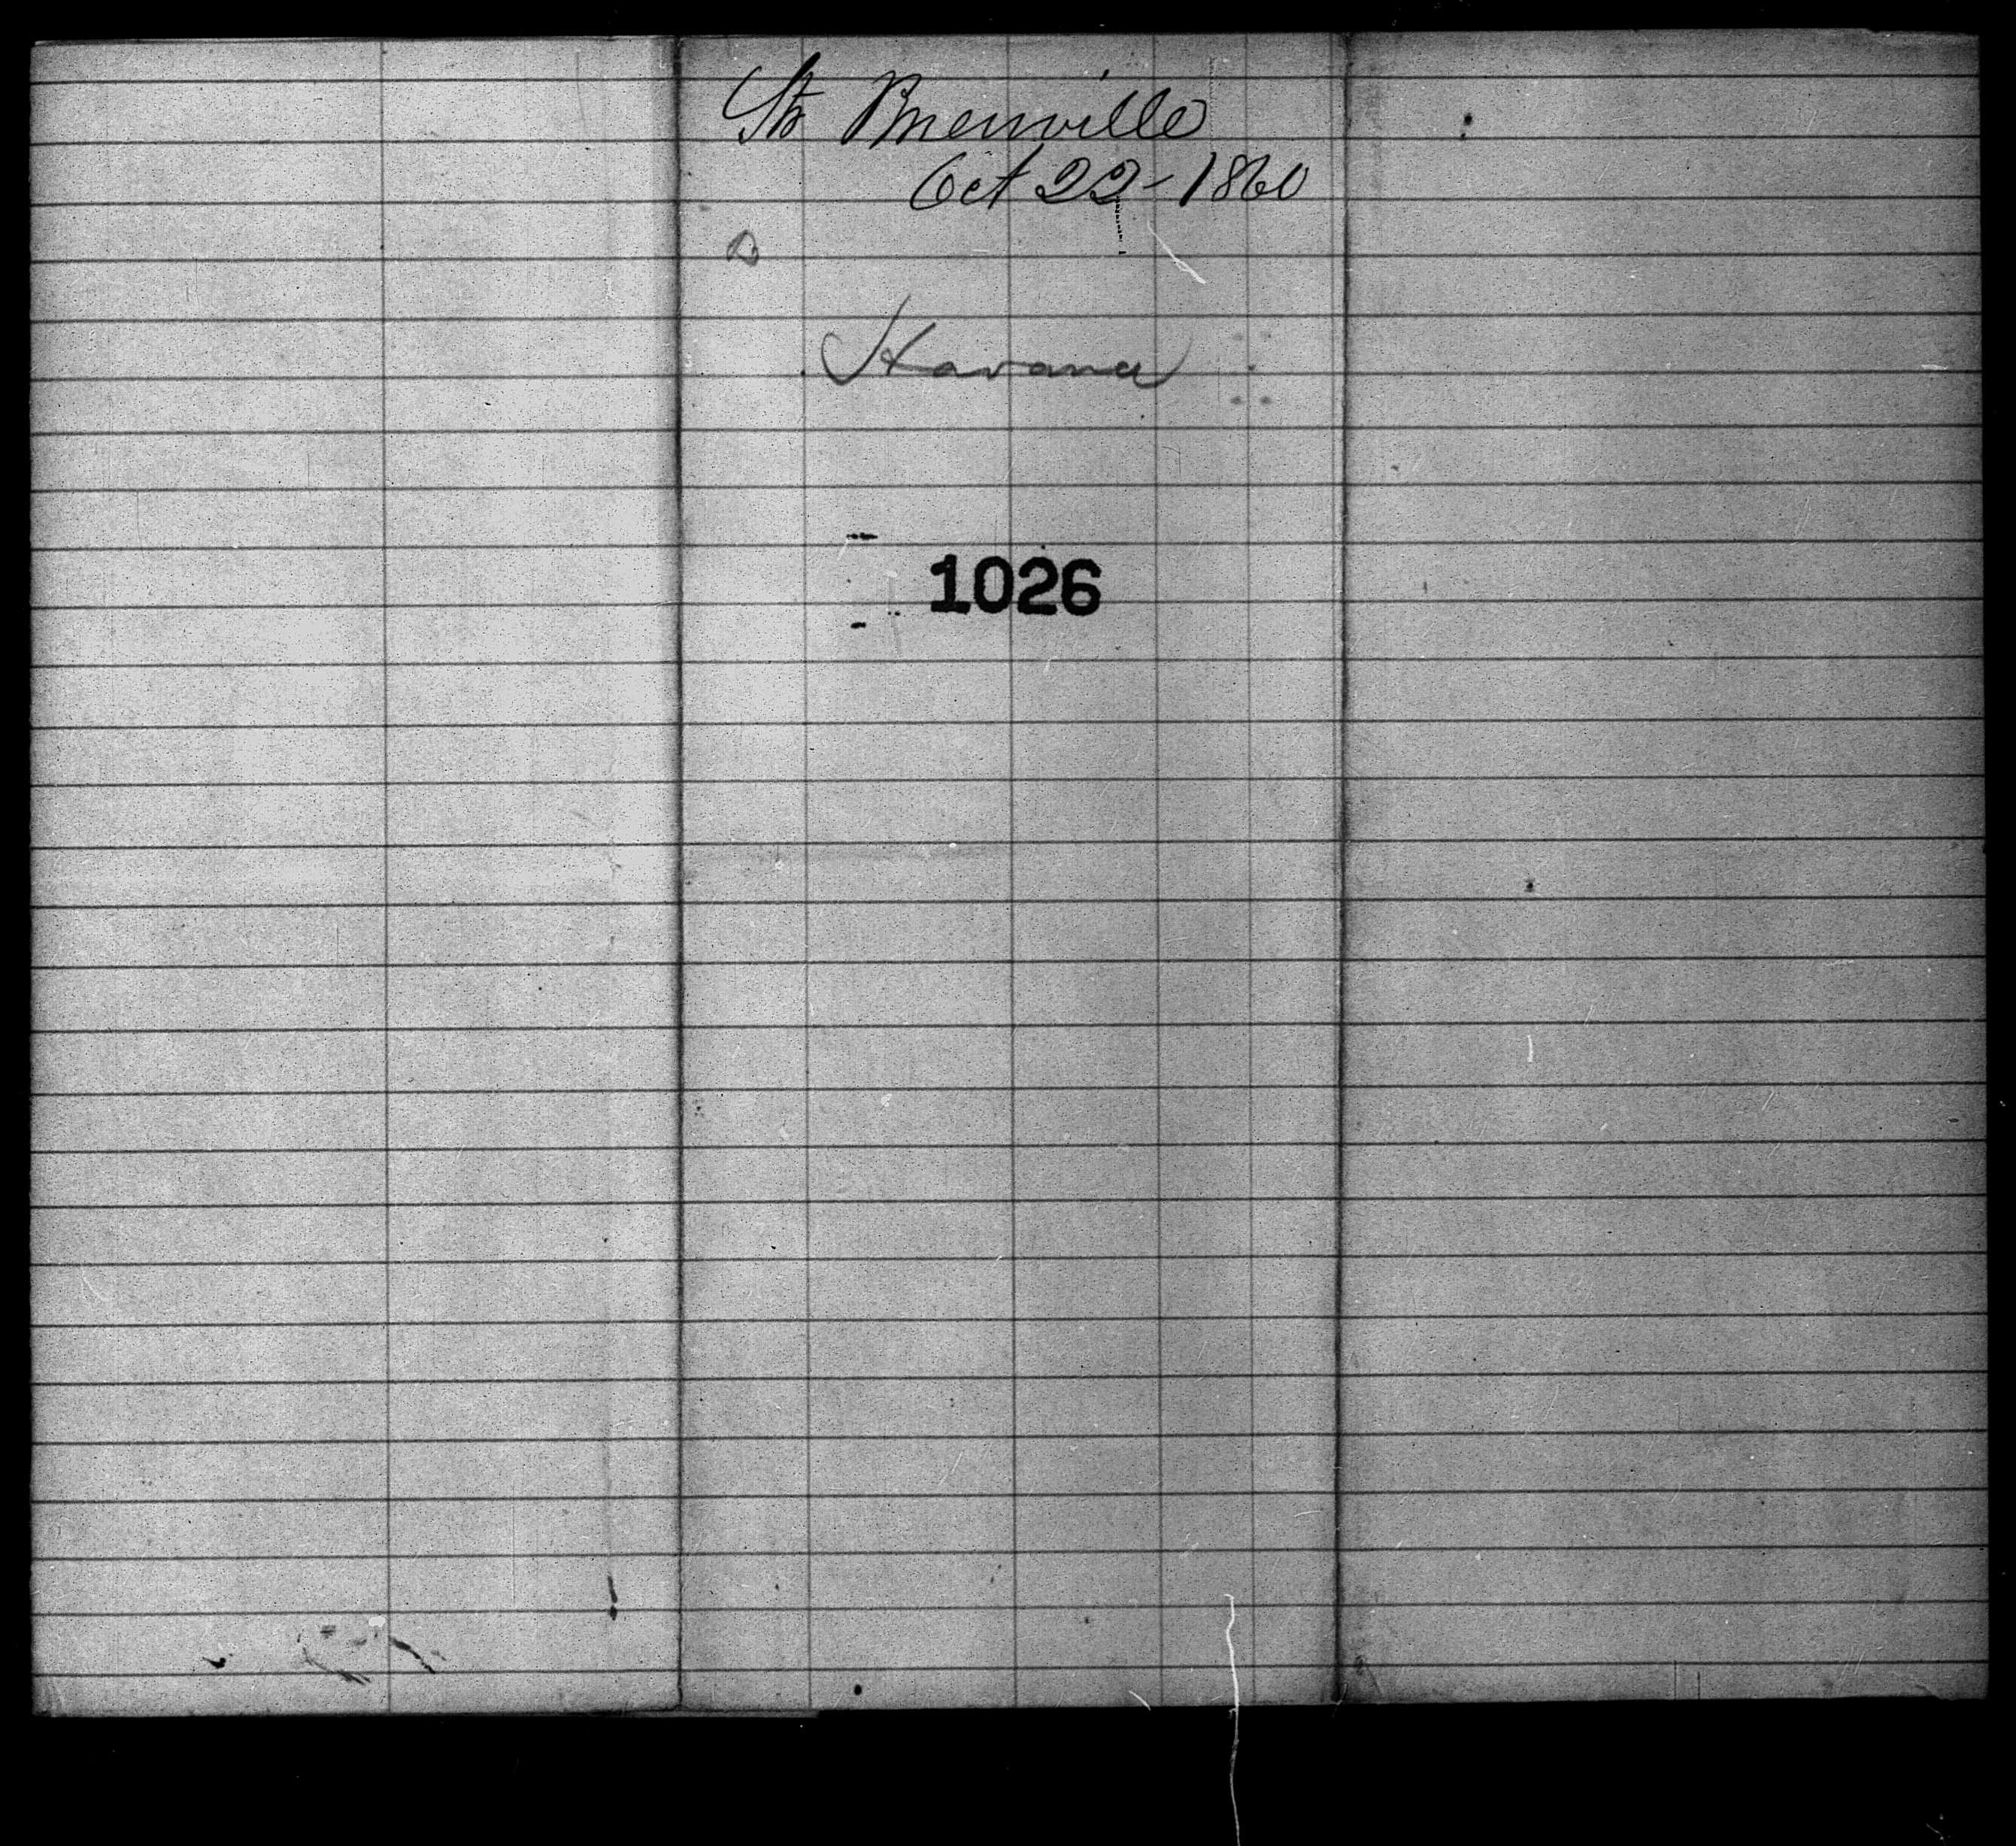 Str Bienville
Oct 22 - 1860
Havana
1026